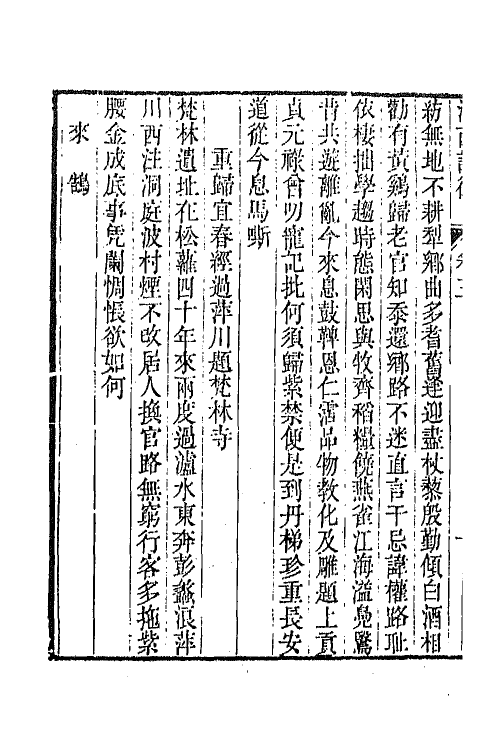 紡無地不耕犁鄉曲多耆舊逢迎盡杖藜殷勤傾白酒相
勸有黃鷄歸老官知忝還鄉路不迷直言干忌諱權路耻
依棲拙學趨時態閑思與牧齊稻糧饒燕雀江海溢鳧鷖
昔共遊離亂今來息鼓鞞恩仁霑品物教化及雕題上貢
貞元祿曾叨寵記批何須歸紫禁便是到丹梯珍重長安
道從今息馬嘶
重歸宜春經過萍川題梵林寺
梵林遺址在松蘿四十年來兩度過瀘水東奔彭蠡浪萍
川西注洞庭波村煙不改居人換官路無窮行客多拖紫
腰金成底事凭闌惆悵欲如何
來鵠